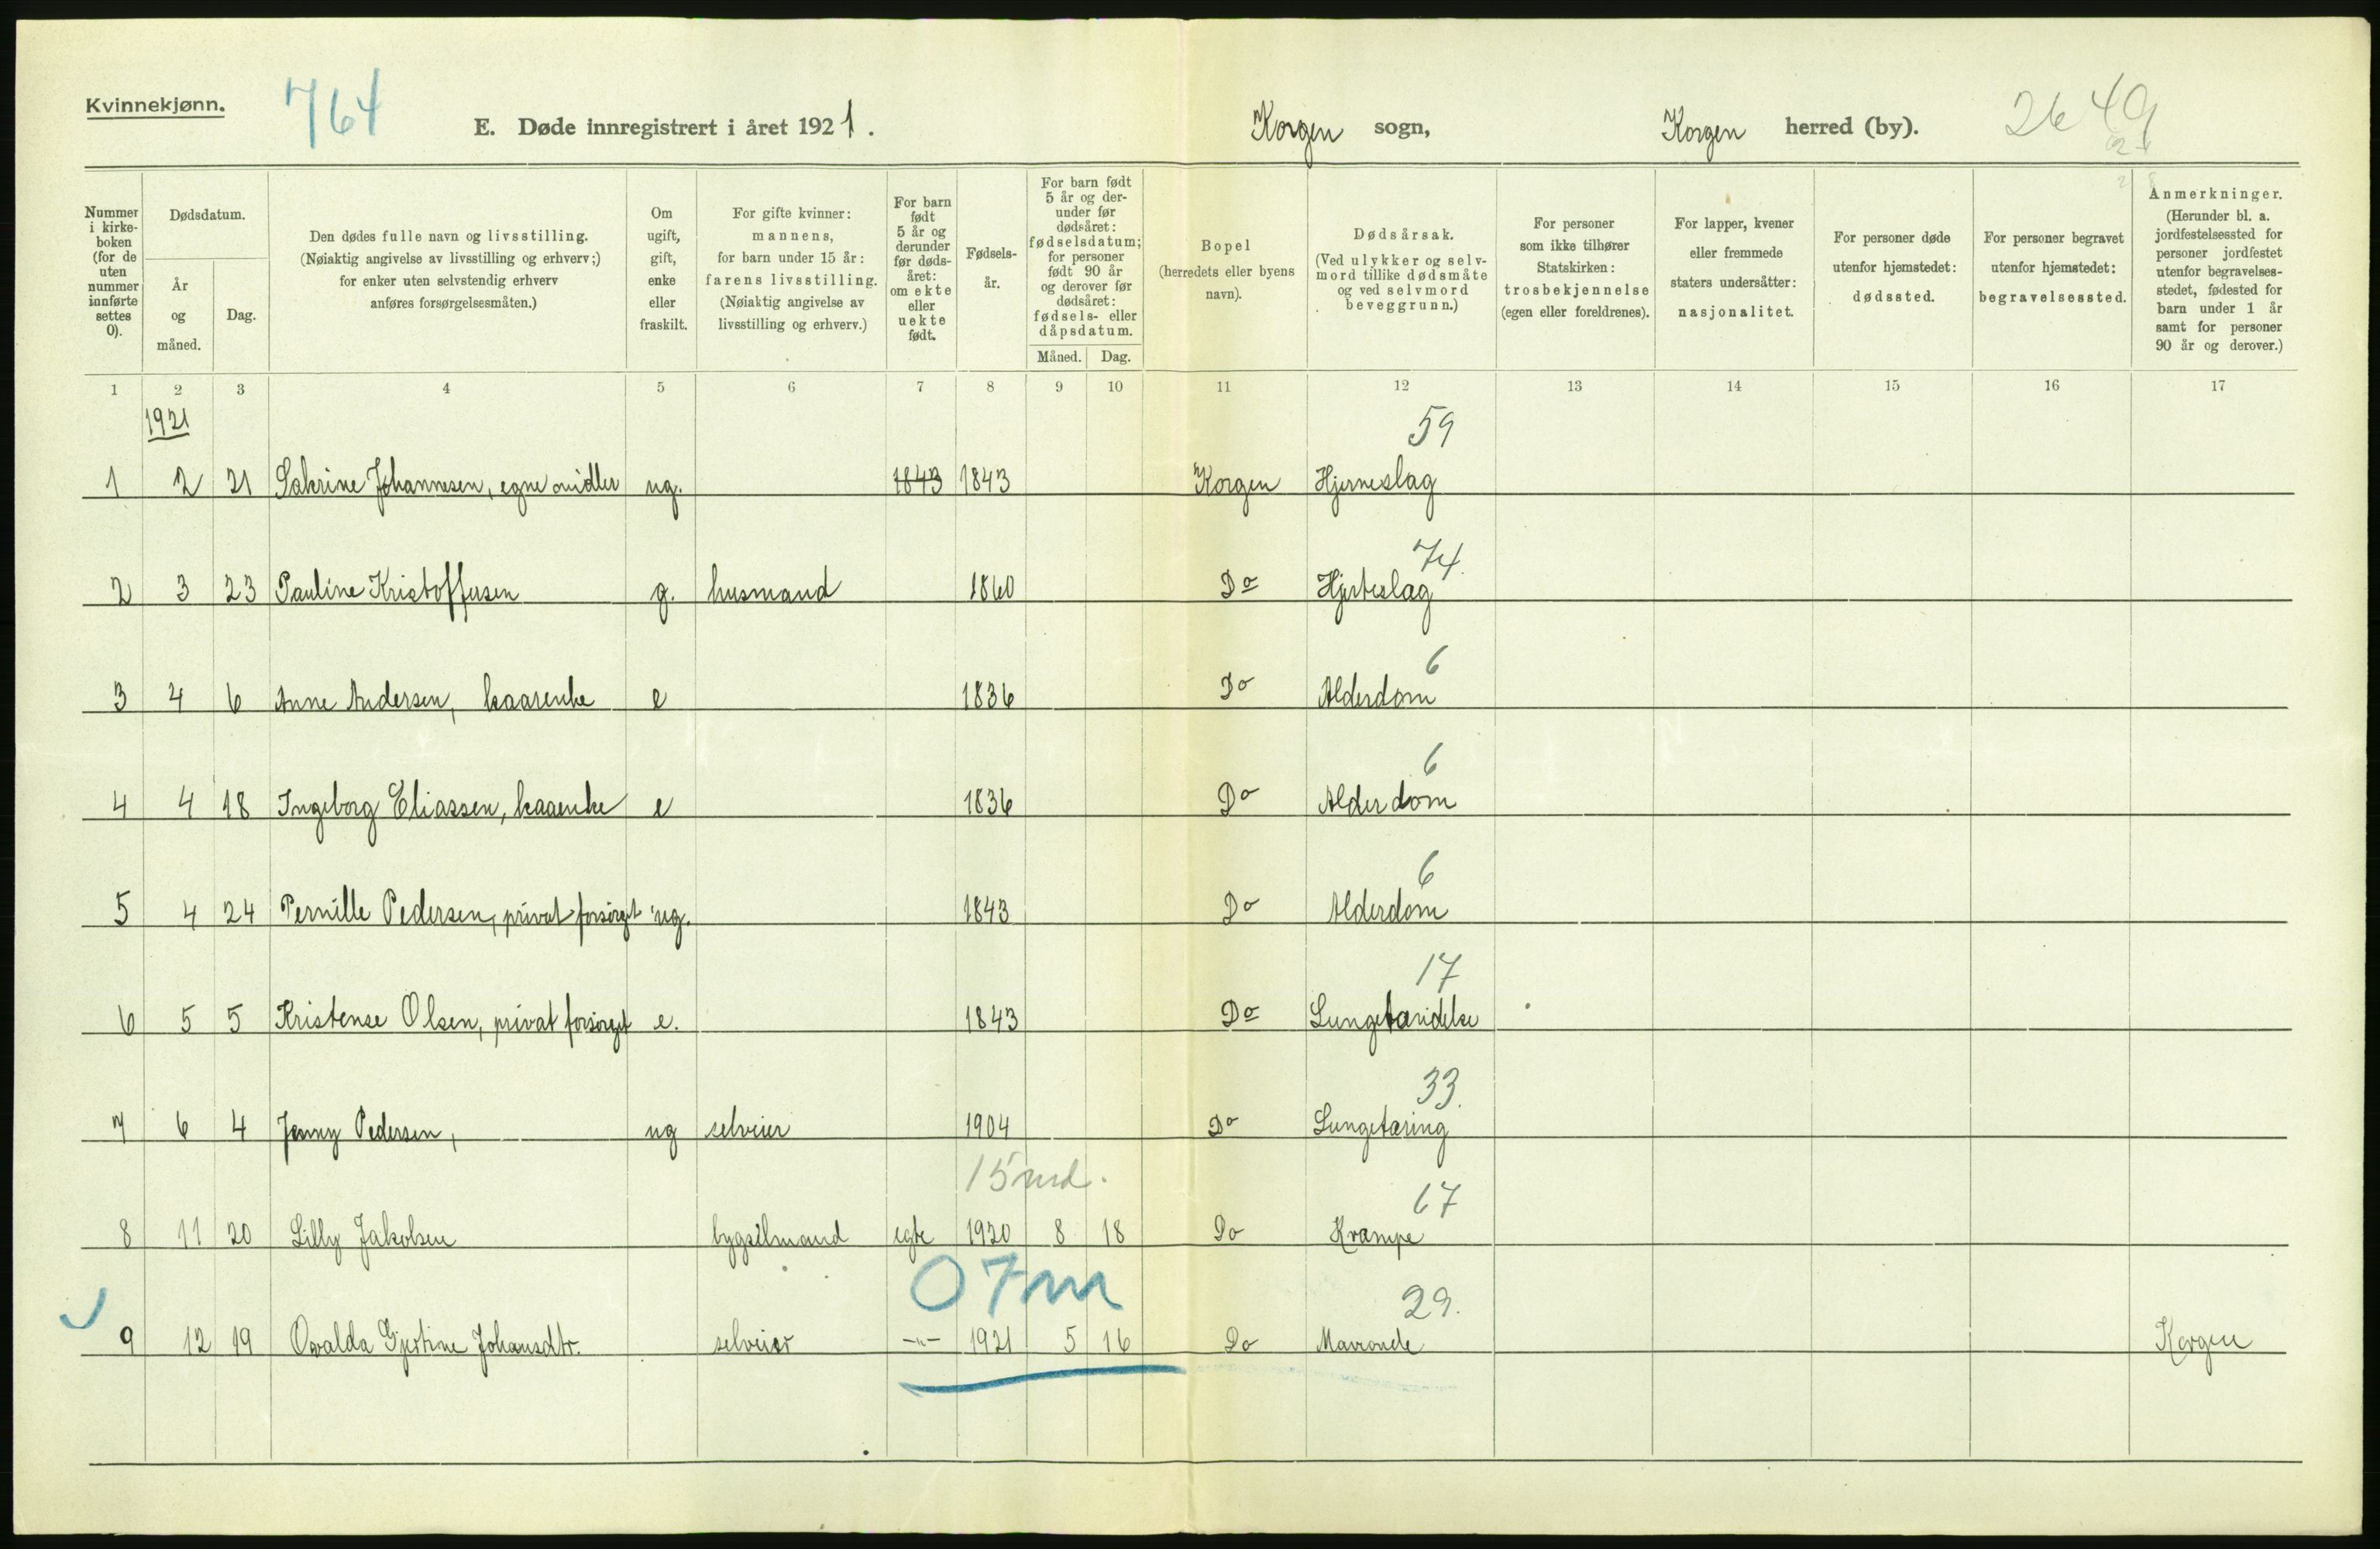 Kvinnekjønn.
764
E. Døde innregistrert i året 1921.
Korgen sogn,
Korgen herred (by).
2649
Nummer i kirke-boken (for de uten nummer innførte settes 0).
Dødsdatum.
År og måned.
Dag.
Den dødes fulle navn og livsstilling.
(Nøiaktig angivelse av livsstilling og erhverv;)
for enker uten selvstendig erhverv
anføres forsørgelsesmåten.)
Om ugift, gift, enke eller fraskilt.
For gifte kvinner: mannens,
for barn under 15 år: farens livsstilling.
(Nøiaktig angivelse av livsstilling og erhverv.)
For barn født 5 år og derunder før døds-året: om ekte eller uekte født.
Fødsels-år.
For barn født 5 år og der-under før dødsåret: fødselsdatum; for personer født 90 år og derover før dødsåret: fødsels- eller dåpsdatum.
Måned. Dag.
Bopel
(herredets eller byens navn).
Dødsårsak.
(Ved ulykker og selv-mord tillike dødsmåte og ved selvmord beveggrunn.)
For personer som ikke tilhører Statskirken: trosbekjennelse (egen eller foreldrenes).
For lapper, kvener eller fremmede staters undersåtter: nasjonalitet.
For personer døde utenfor hjemstedet: dødssted.
For personer begravet utenfor hjemstedet: begravelsessted.
Anmerkninger.
(Herunder bl. a. jordfestelsessted for personer jordfestet utenfor begravelses-stedet, fødested for barn under 1 år samt for personer 90 år og derover.)
1 2 3 4 5 6 7 8 9 10 11 12 13 14 15 16 17
1921
59
1 2 21 Sakrine Johannesen, egne midler ug. 1843 1843 Korgen Hjerneslag
74.
2 3 23 Pauline Kristoffersen g. husmand 1860 Do Hjerteslag
6
3 4 6 Anne Andersen, kaarenke e 1836 Do Alderdom
6
4 4 18 Ingeborg Eliassen, kaarenke e 1836 Do Alderdom
6
5 4 24 Pernille Pedersen, privat forsörget ug. 1843 Do Alderdom
17
6 5 5 Kristense Olsen, privat forsörget e. 1843 Do Lungebetændelse
33.
7 6 4 Jenny Pedersen, ug selveier 1904 Do Lungetæring
15 md. 67
8 11 20 Lilly Jakobsen bygselmand egte 1920 8 18 Do Krampe
07m 29.
9 12 19 Ovalda Gjertine Johansdtr. selveier -"- 1921 5 16 Do Korgen